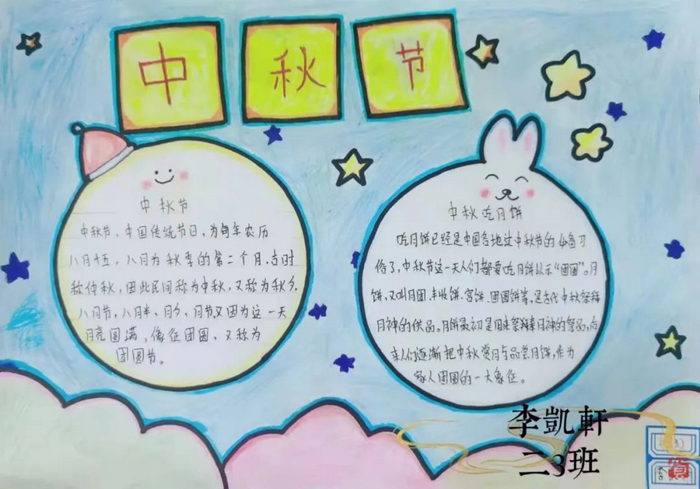 中秋节
中秋节
中秋节，中国传统节日，为每年农历
八月十五，八月为秋季的第二个月，古时
称仲秋，因此民间称为中秋，又称为秋夕、
八月节，八月半，月夕，月节又因为这一天
月亮圆满，像征团圆，又称为
团圆节。
中秋吃月饼
吃月饼已经是中国各地过中秋节的必备习
俗了，中秋节这一天人们都要吃月饼以示“团圆”。月
饼，又叫月团、丰收饼、宫饼、团圆饼等，是古代中秋祭拜
月神的供品，月饼最初是用来祭拜月神的祭品，后
来人们逐渐把中秋赏月与品尝月饼，作为
家人团圆的一大象征。
李凱軒
二3班